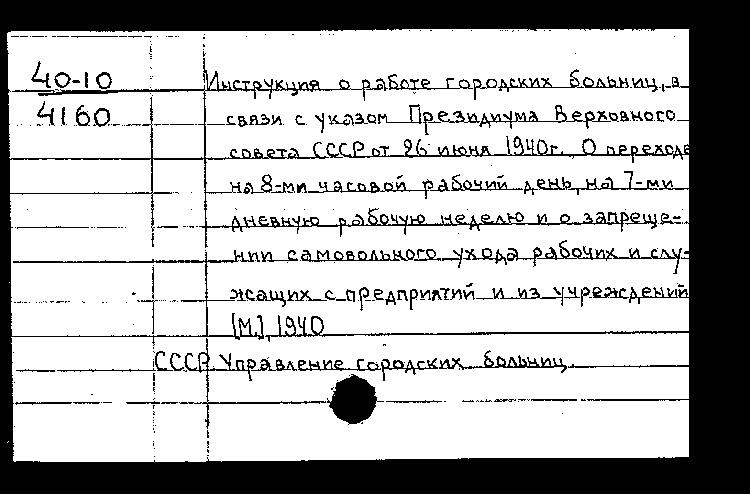 40-10
4160
Инструкция о работе городских больниц, в
связи с указом Президиума Верховного
совета СССР от 26 июня 1940г. О переходе
на 8-ми часовой рабочий день, на 7-ми
дневную рабочую неделю и о запреще-
нии самовольного ухода рабочих и слу-
жащих с предприятий и из учреждений
[М.], 1940
СССР. Управление городских больниц.